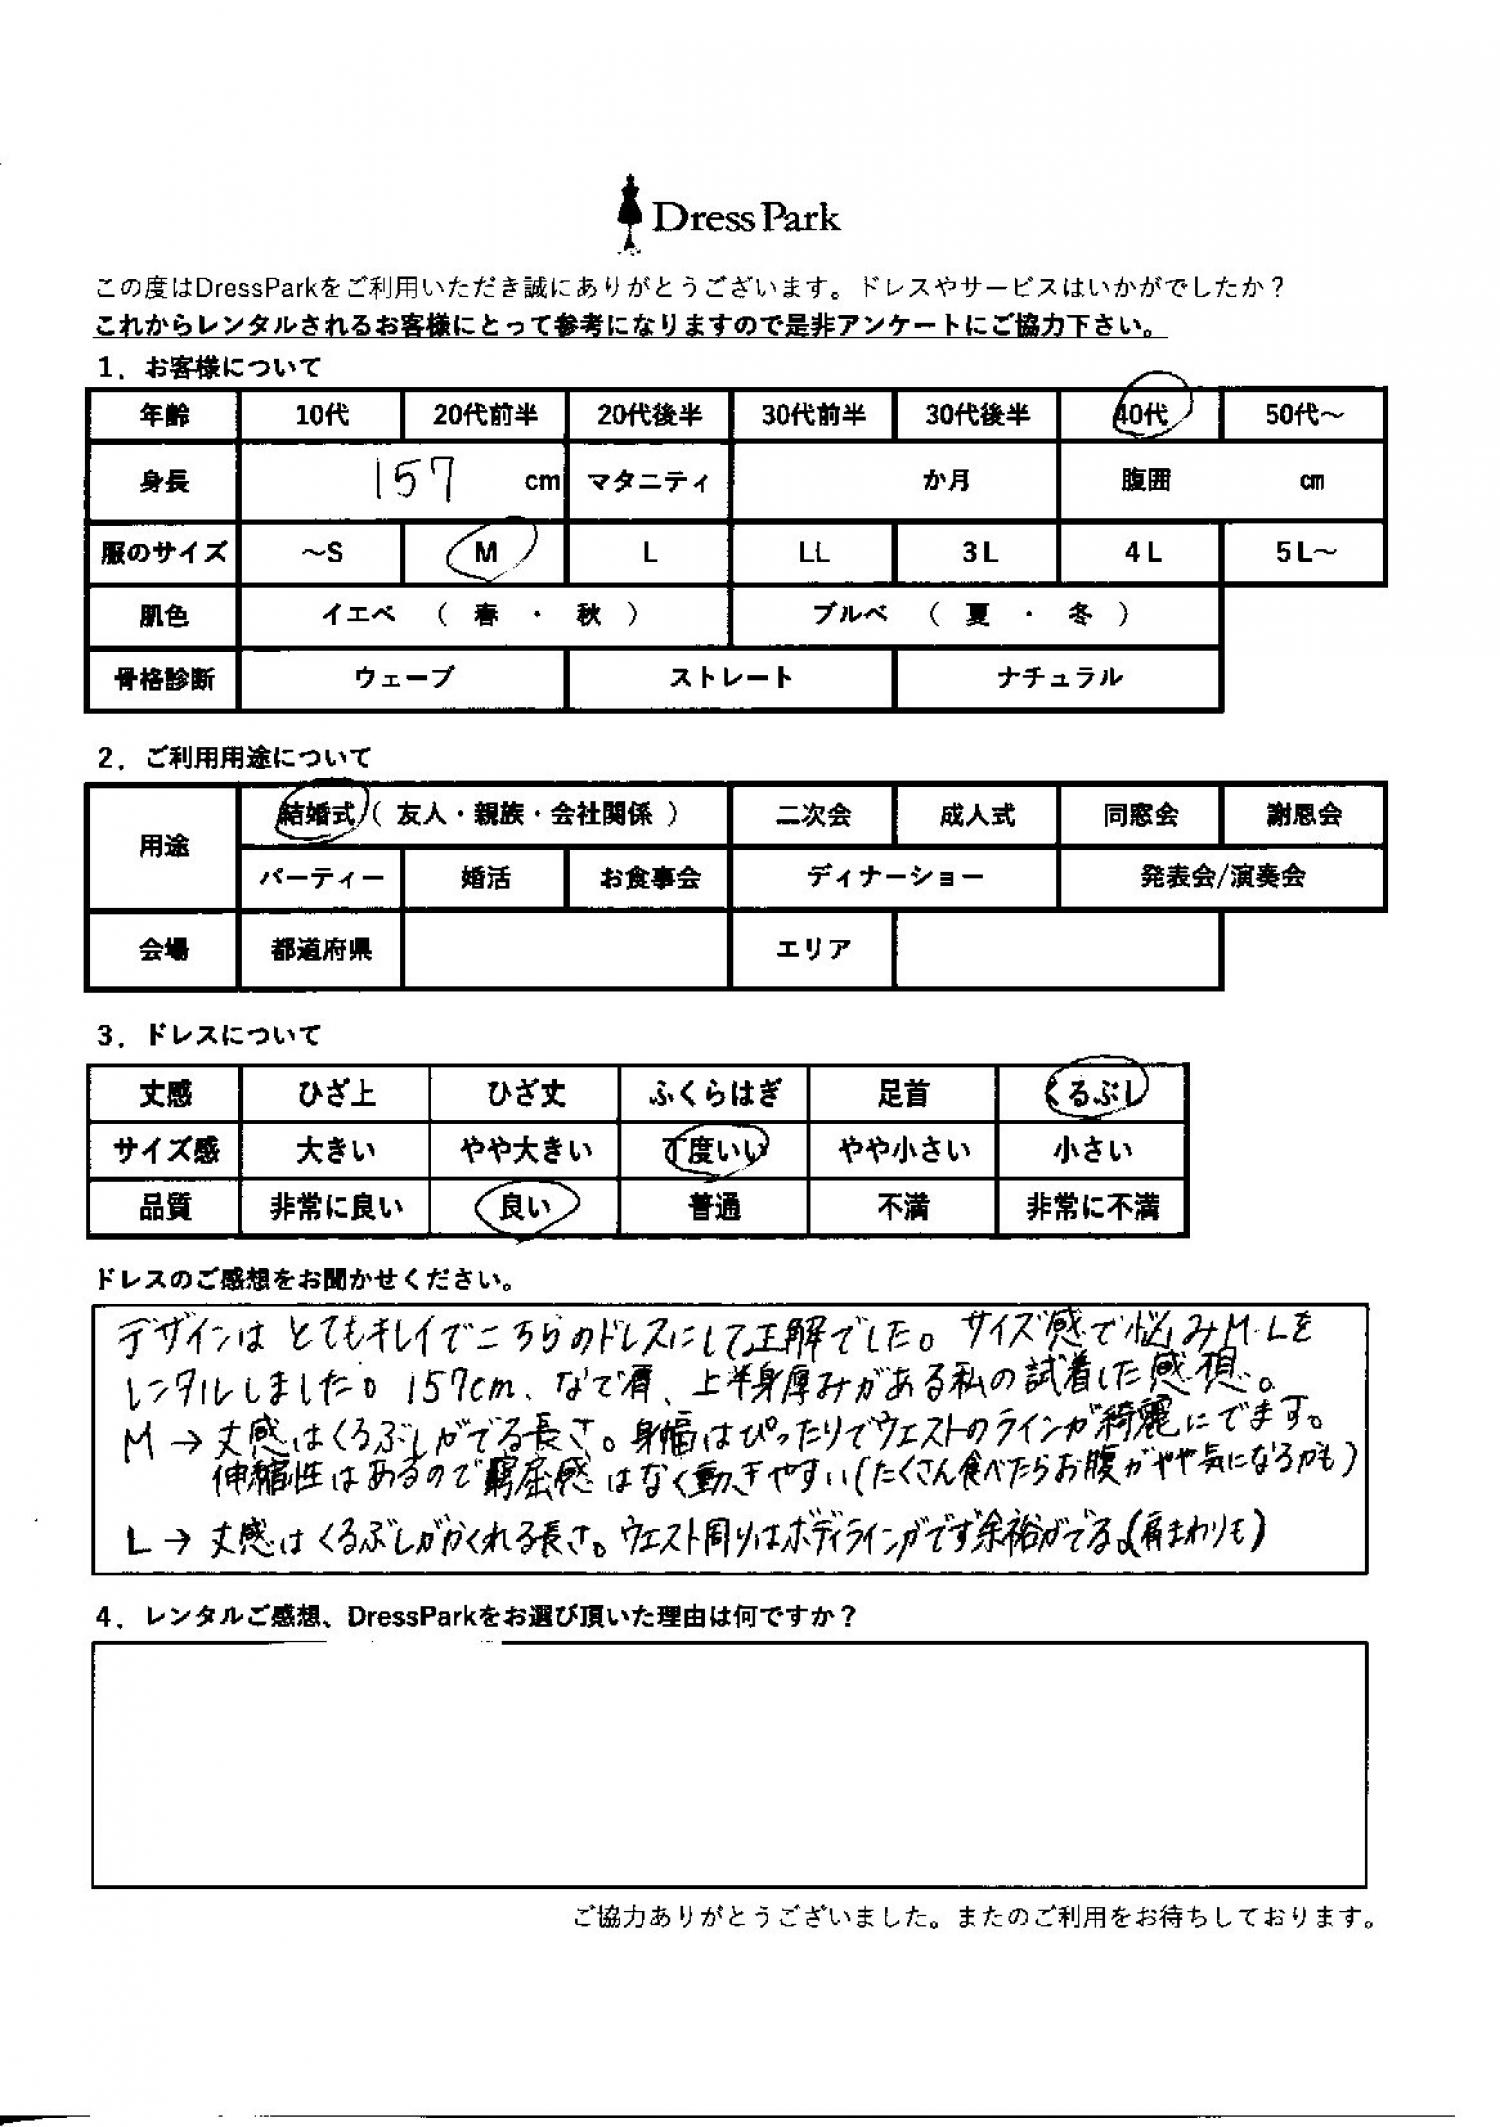 Dress Park
この度はDressParkをご利用いただき誠にありがとうございます。ドレスやサービスはいかがでしたか？
これからレンタルされるお客様にとって参考になりますので是非アンケートにご協力下さい。
1．お客様について
年齢 10代 20代前半 20代後半 30代前半 30代後半 40代 50代～
身長 157 cm マタニティ か月 腹囲 ㎝
服のサイズ ～S M L LL 3L 4L 5L～
肌色 イエベ （ 春 ・ 秋 ） ブルベ （ 夏 ・ 冬 ）
骨格診断 ウェーブ ストレート ナチュラル
2．ご利用用途について
用途 結婚式（ 友人・親族・会社関係 ） 二次会 成人式 同窓会 謝恩会
パーティー 婚活 お食事会 ディナーショー 発表会/演奏会
会場 都道府県 エリア
3．ドレスについて
丈感 ひざ上 ひざ丈 ふくらはぎ 足首 くるぶし
サイズ感 大きい やや大きい 丁度いい やや小さい 小さい
品質 非常に良い 良い 普通 不満 非常に不満
ドレスのご感想をお聞かせください。
デザインは とてもキレイでこちらのドレスにして正解でした。サイズ感で悩みM・Lを
レンタルしました。157cm、なで肩、上半身厚みがある私の試着した感想。
M → 丈感はくるぶしがでる長さ。身幅はぴったりでウエストのラインが綺麗にでます。
伸縮性はあるので窮屈感はなく動きやすい(たくさん食べたらお腹がやや気になるかも)
L → 丈感はくるぶしがかくれる長さ。ウエスト周りはボディラインがでず余裕がでる。(肩まわりも)
4．レンタルご感想、DressParkをお選び頂いた理由は何ですか？
ご協力ありがとうございました。またのご利用をお待ちしております。